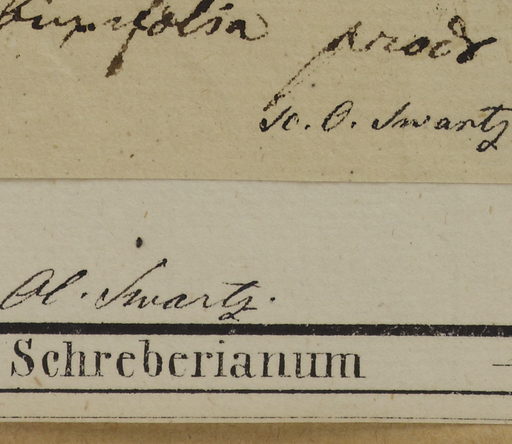 prodr
O. Swartz
Ol. Swartz.
Schreberianum